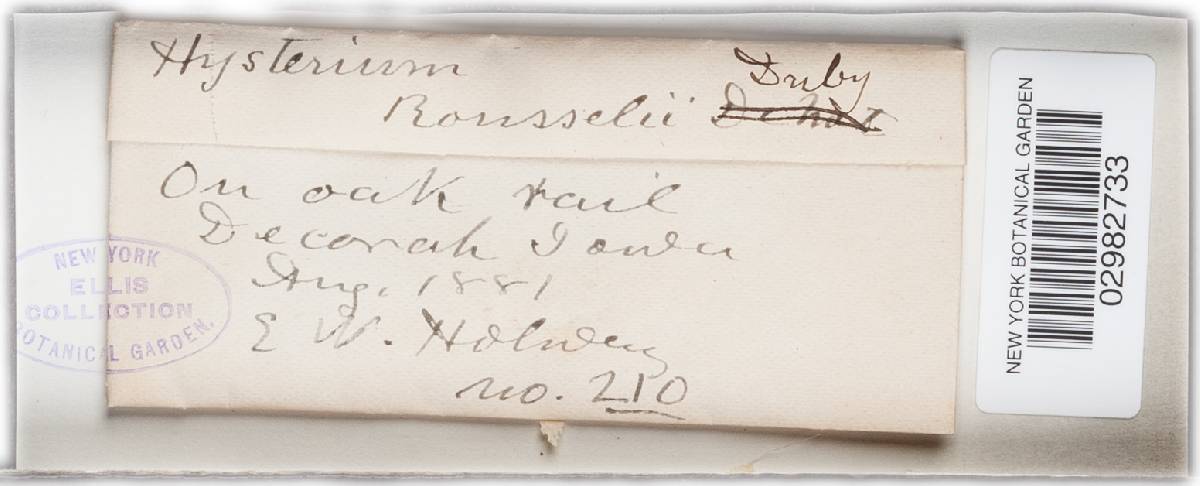 Hysterium
Duby
Rousselii
On oak rail
Decorah Iowa
Aug. 1881
E W. Holway
no. 210
NEW YORK
ELLIS
COLLECTION
BOTANICAL GARDEN.
NEW YORK BOTANICAL GARDEN
02982733